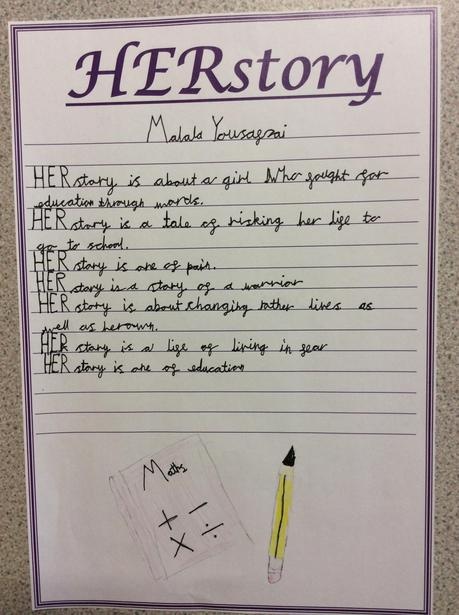 HERstory
Malala Yousagzai
HERstory is about a girl Who fought for
education through words.
HERstory is a tale of risking her life to
go to school.
HERstory is one of pain.
HERstory is a story of a warrior
HERstory is about changing other lives as
well as her own.
HERstory is a life of living in fear
HERstory is one of education
Maths
+ −
× ÷